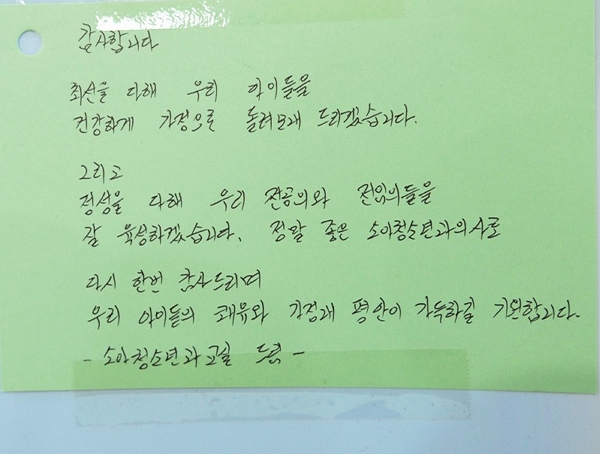 감사합니다
최선을 다해 우리 아이들을
건강하게 가정으로 돌려보내 드리겠습니다.
그리고
정성을 다해 우리 전공의와 전임의들을
잘 육성하겠습니다. 정말 좋은 소아청소년과의사로
다시 한번 감사드리며
우리 아이들의 쾌유와 가정내 평안이 가득하길 기원합니다.
- 소아청소년과 교실 드림 -